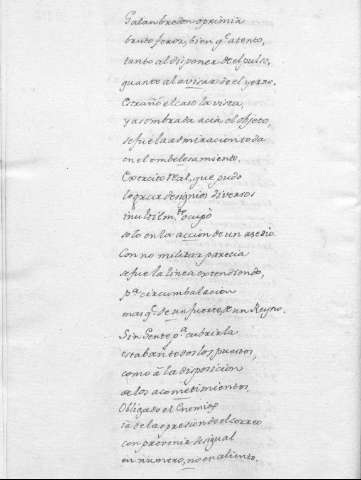 Galan bredon oprimia
bruto feroz, bien q.e atento,
tanto al disponer de el pulso,
quanto al avisar de el yerro.
Estrañó el caso la vista,
y asombrada acia el objeto,
se fue la admiracion toda
en el embelesamiento.
Exercito Real, que pudo
lograr designios diversos
inutilm.te ocupó
solo en la accion de un asedio
Con no militar parecia
se fue la linea extendiendo,
p.a circumbalacion
mas q.e de un fuerte, de un Reyno.
Sin Gente p.a cubrirla
estaban todos los puestos,
como á la disposicion
de los acometimientos
Obligado el Enemigo
iá de la opresion de el correo
con prevenir desigual
en numero, no en aliento.